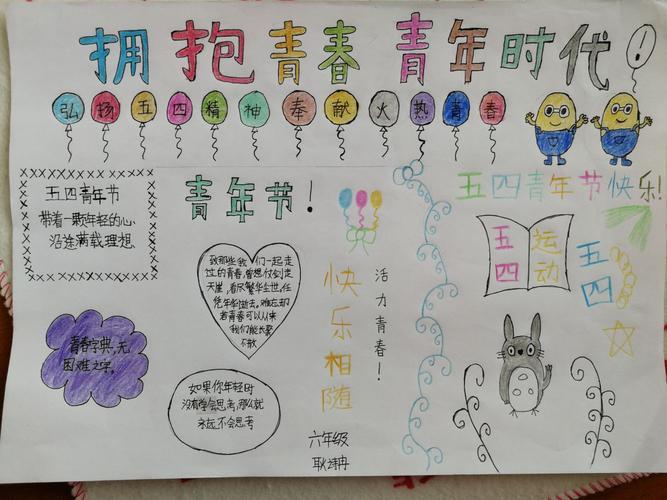 拥抱青春 青年时代!
弘扬五四精神奉献火热青春
五四青年节
带着一颗年轻的心
沿途满载理想
青年节!
五四青年节快乐!
致那些我们一起走
过的青春,曾想仗剑走
天崖,看尽繁华尘世,任
凭年华逝去。难忘却
若青春可以从来
我们能长聚
不散
快乐相随
活力青春!
五四
运动
五四
青春字典,无
困难之字。
如果你年轻时
没有学会思考,那么就
永远不会思考
六年级